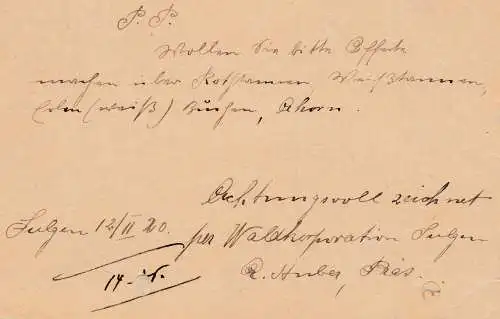 P. P.
Wollen Sie bitte Offerte
machen über Rothtannen, Weißtannen,
(weiß) Buchen, Ahorn.
Achtungsvoll zeichnet
Sulgen 12/II 20. per Waldkorporation Sulgen
R. Huber, Präs.
14.